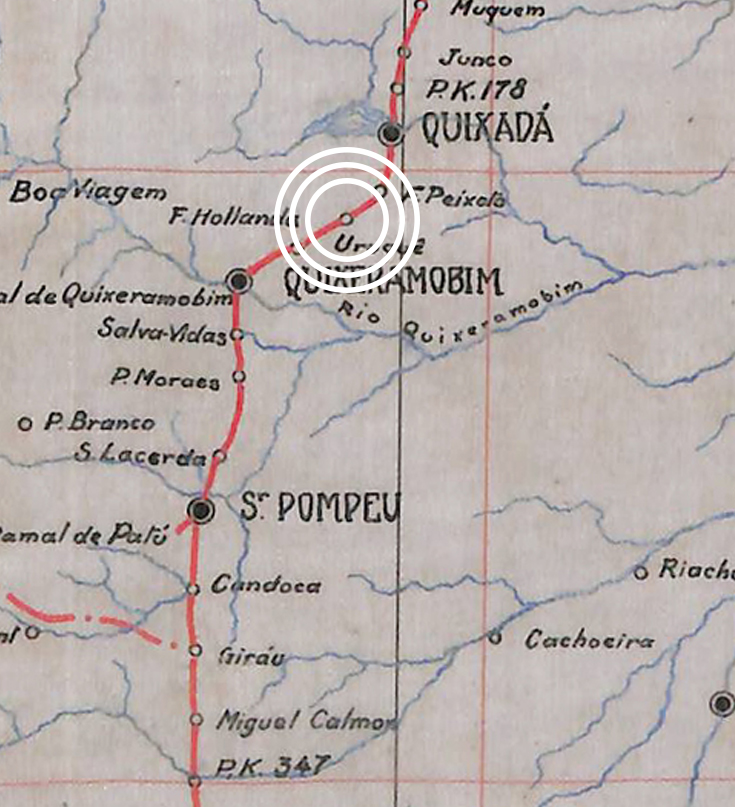 Muquem
Junco
P.K.178
QUIXADÁ
Boa Viagem
Peixoto
F. Hollanda
Uruquê
QUIXERAMOBIM
al de Quixeramobim
Rio Quixeramobim
Salva-Vidas
P. Moraes
P. Branco
S. Lacerda
Sr. POMPEU
Ramal de Patú
Candoca
Riacho
Cachoeira
Giráu
Miguel Calmon
P.K. 347